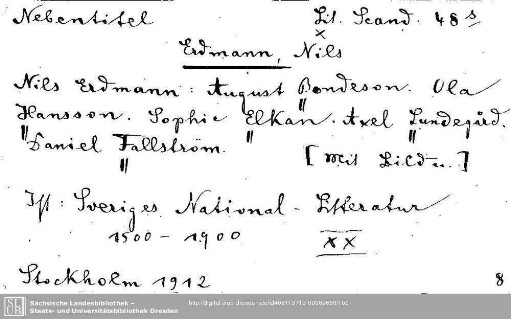 Nebentitel Lit. Scand. 48 s
x
Erdmann, Nils
Nils Erdmann: August Bondeson. Ola
Hansson. Sophie Elkan. Axel Lundegård.
Daniel Fallström. [Mit Bildn.]
Ist: Sveriges National-Litteratur
1500-1900 XX
Stockholm 1912 8
SLUB
Sächsische Landesbibliothek –
Staats- und Universitätsbibliothek Dresden